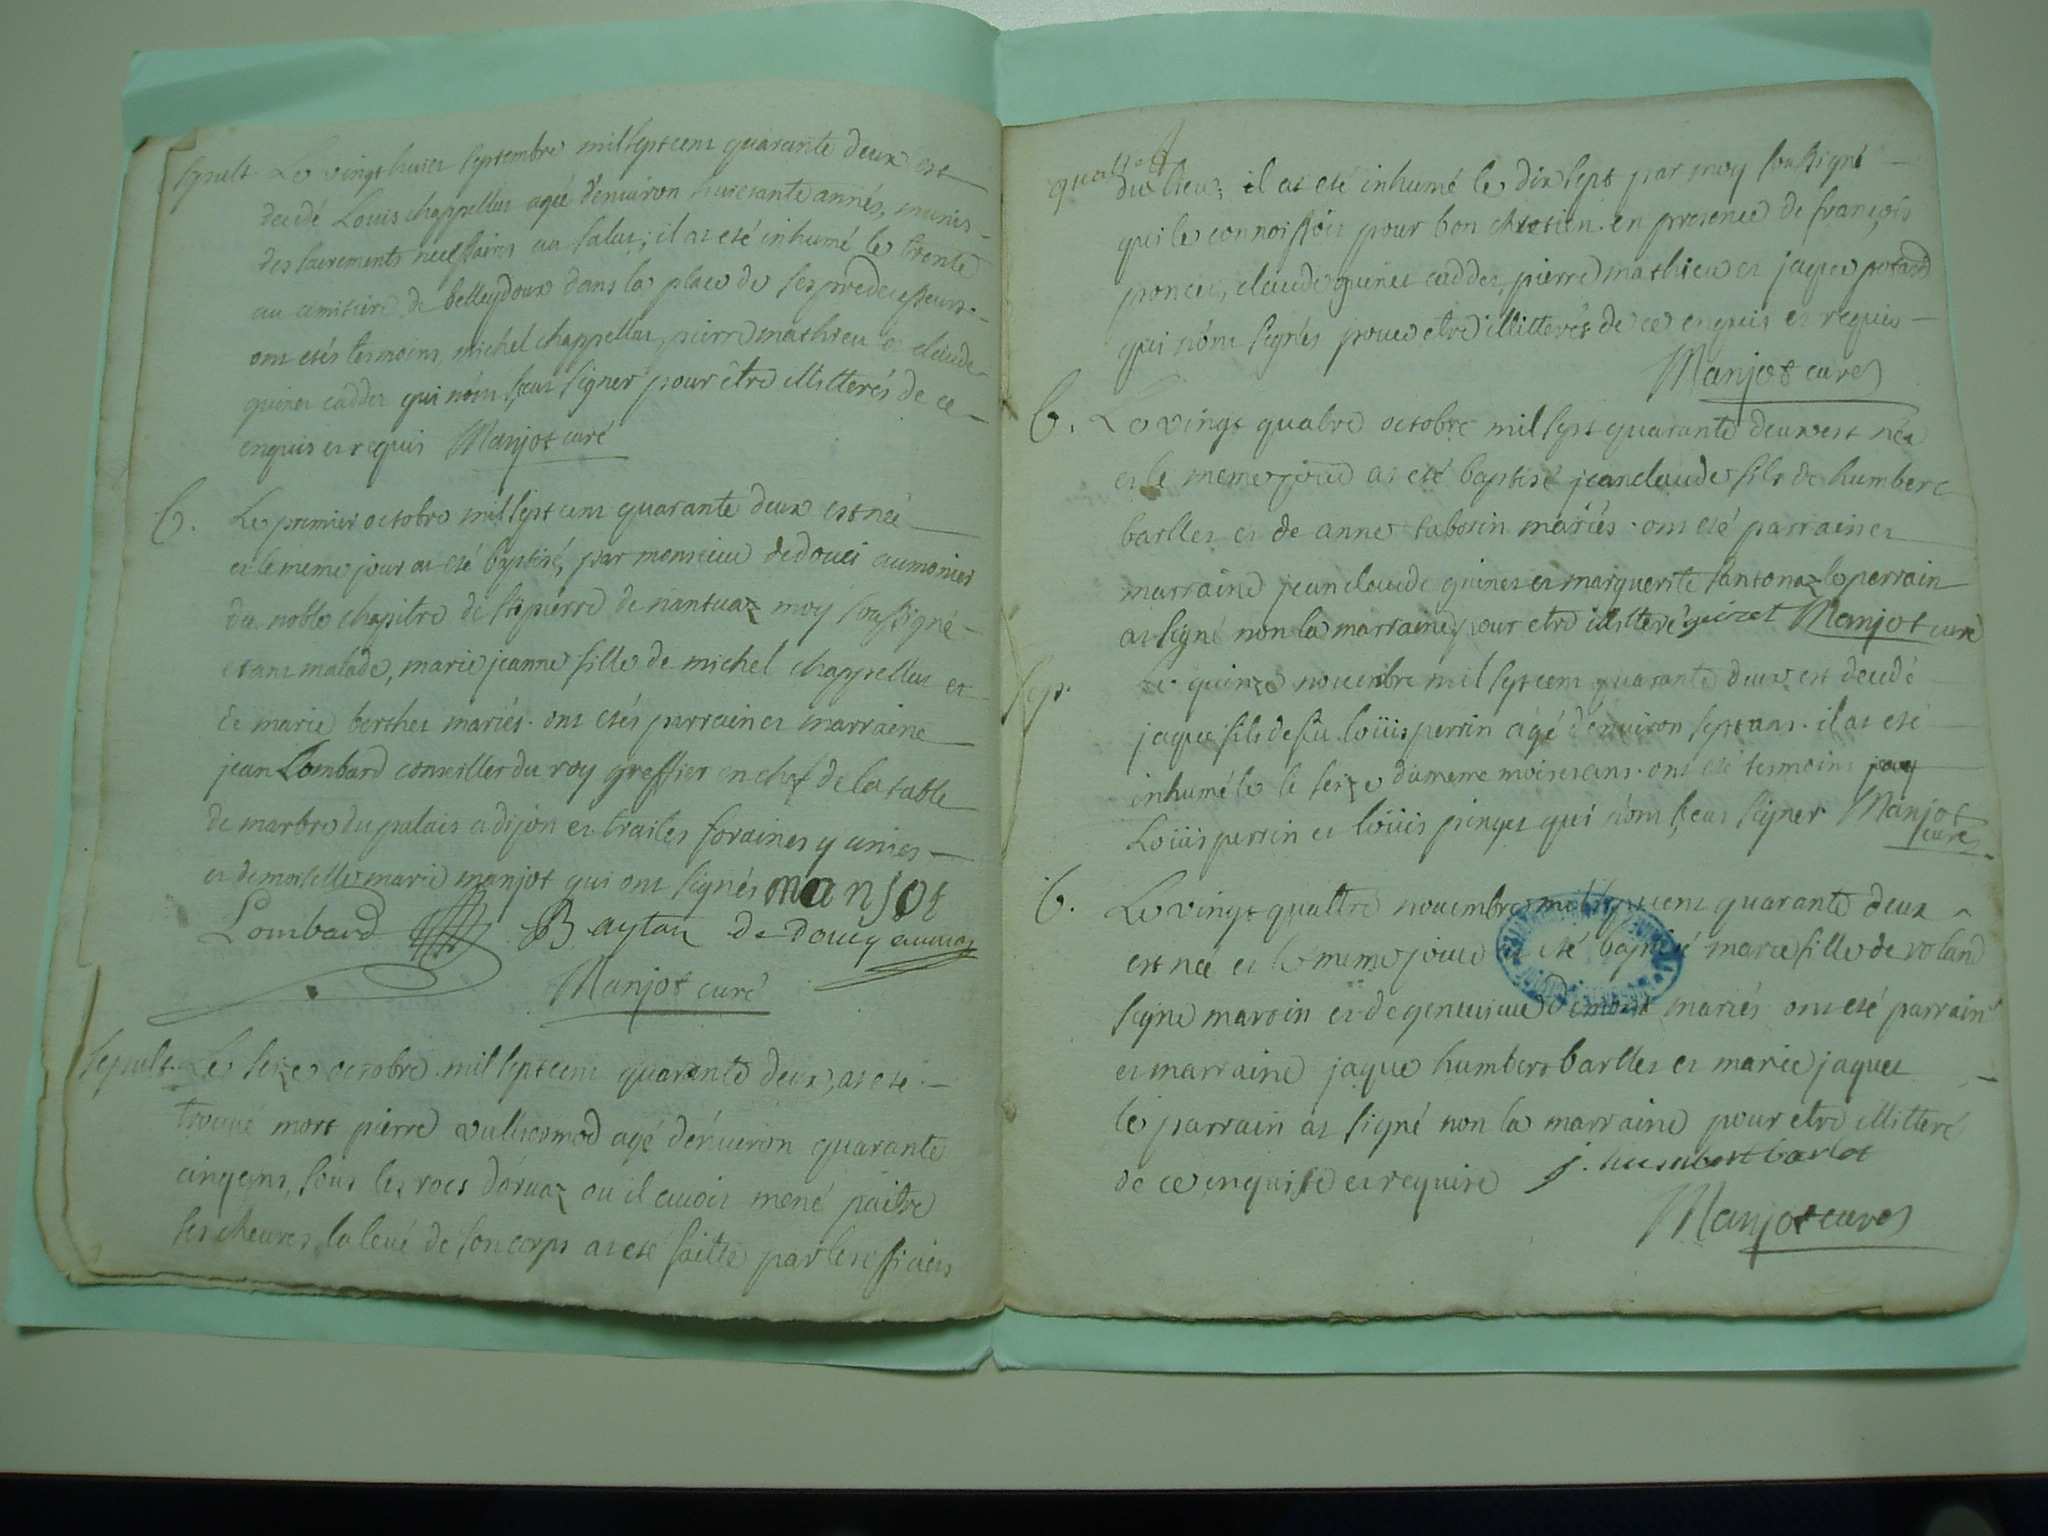 sepult. Le vingt huict septembre mil sept cent quarante deux est
decedé Louis chappellus agé d'environ huictante années, munis
des sacrements necessaires au salut; il at eté inhumé le trente
au cemitiere de belleydoux dans la place de ses predecesseurs.
ont etés tesmoins michel chappellus, pierre mathieu et claude
guinet caddet qui n'ont sceut signer pour être illitterés de ce
enquis et requis Manjot curé
b. Le premier octobre mil sept cent quarante deux est née
et le meme jour at eté baptisé, par monsieur dedouci aumonier
du noble chapitre de st pierre de nantuaz moy soussigné
etant malade, marie jeanne fille de michel chappellus et
de marie berchet mariés. ont etés parrain et marraine
jean Lombard conseiller du roy greffier en chef de la table
de marbre du palais a dijon et traites foraines y unies
et demoiselle marie manjot qui ont signés manjot
Lombard B aytaz De Doucy aumoz
Manjot curé
sepult. Le seize octobre mil sept cent quarante deux, at eté
trouvé mort pierre agé d'environ quarante
cinq ans, sous les rocs d'orvaz ou il avoit mené paitre
ses chevres, la levé de son corps at eté faitte par les officiers
quattre
du lieu; il at eté inhumé le dix sept par moy soussigné
qui le connoissois pour bon chretien. en presence de françois
poncet, claude guinet caddet, pierre mathieu et jaque potard
qui n'ont signés pour etre illitterés de ce enquis et requis
Manjot curé
b. Le vingt quatre octobre mil sept quarante deux est née
et le meme jour at eté baptisé jean claude fils de humbert
barllet et de anne taborin mariés. ont eté parrain et
marraine jean claude guinet et marguerite santonaz le parrain
at signé non la marraine pour etre illitteré guinet Manjot curé
sep. Le quinze novembre mil sept cent quarante deux est decedé
jaque fils de fu loüis perrin agé d'environ sept ans. il at eté
inhumé le le seize du meme mois et ans. ont eté tesmoins
Loüis perrin et loüis pinget qui n'ont sceut signer Manjot
curé
b. Le vingt quattre novembre mil sept cent quarante deux
est née et le meme jour at eté baptisé marie fille de roland
seigne martin et de genevieve demont mariés ont eté parrain
et marraine jaque humbert barllet et marie jaquet
le parrain at signé non la marraine pour etre illitteré
de ce enquise et requise j. humbert barlet
Manjot curé